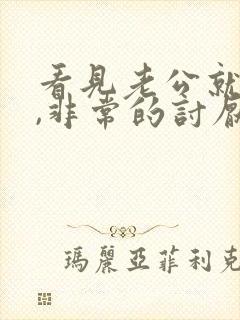 看見老公就
,非常的討厭
瑪麗亞菲利克